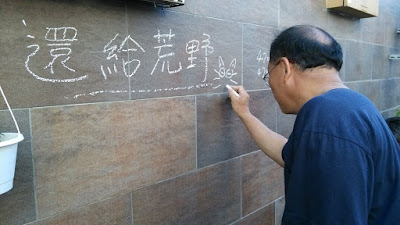 還給荒野